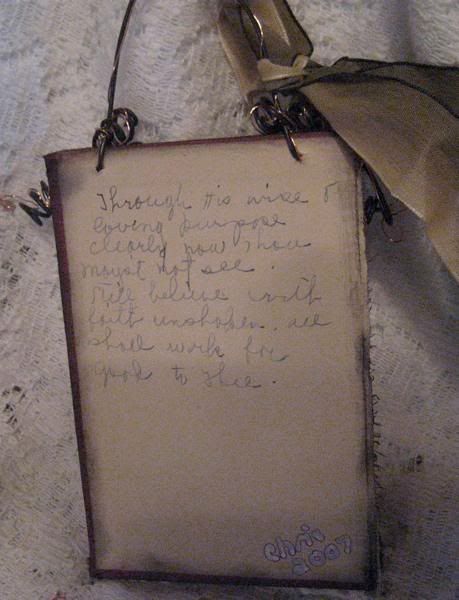 Through His wise &
loving purpose
clearly now thou
mayst not see.
Still believe with
faith unshaken, all
shall work for
good to thee.
Chris
2007